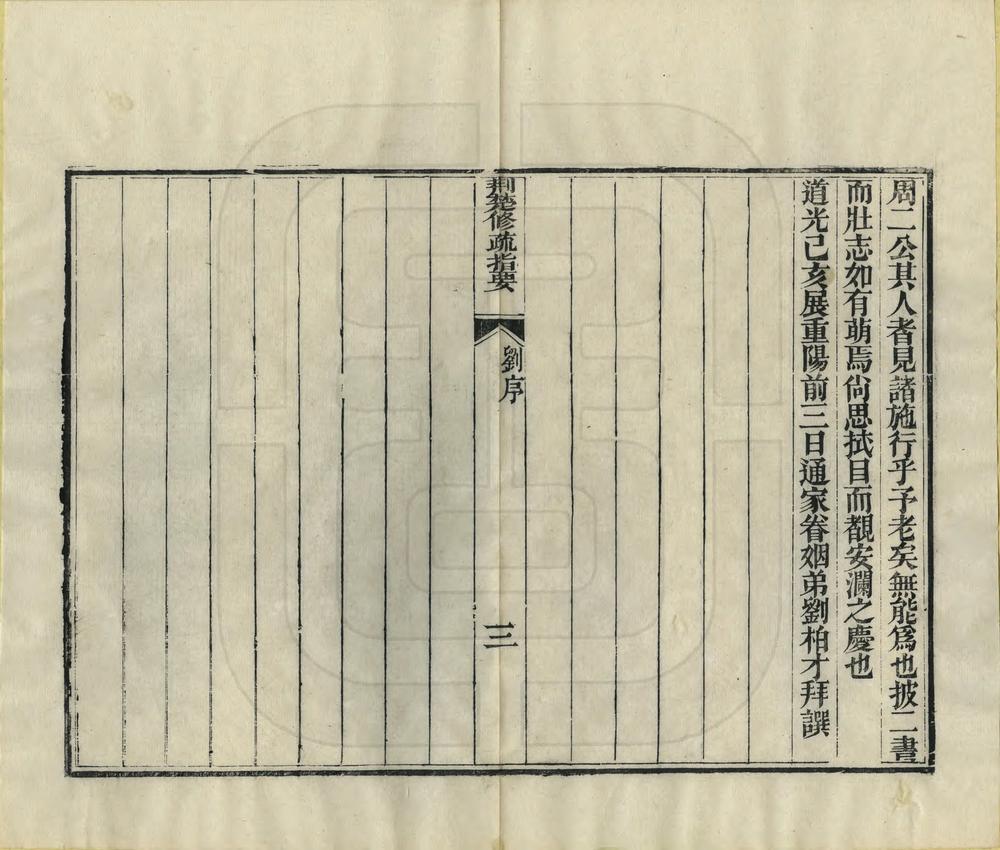 周二公其人者見諸施行乎予老矣無能爲也披二書
而壯志如有萌焉尙思拭目而覩安瀾之慶也
道光己亥展重陽前三日通家眷姻弟劉柏才拜譔
荆楚修疏指要
劉序
三